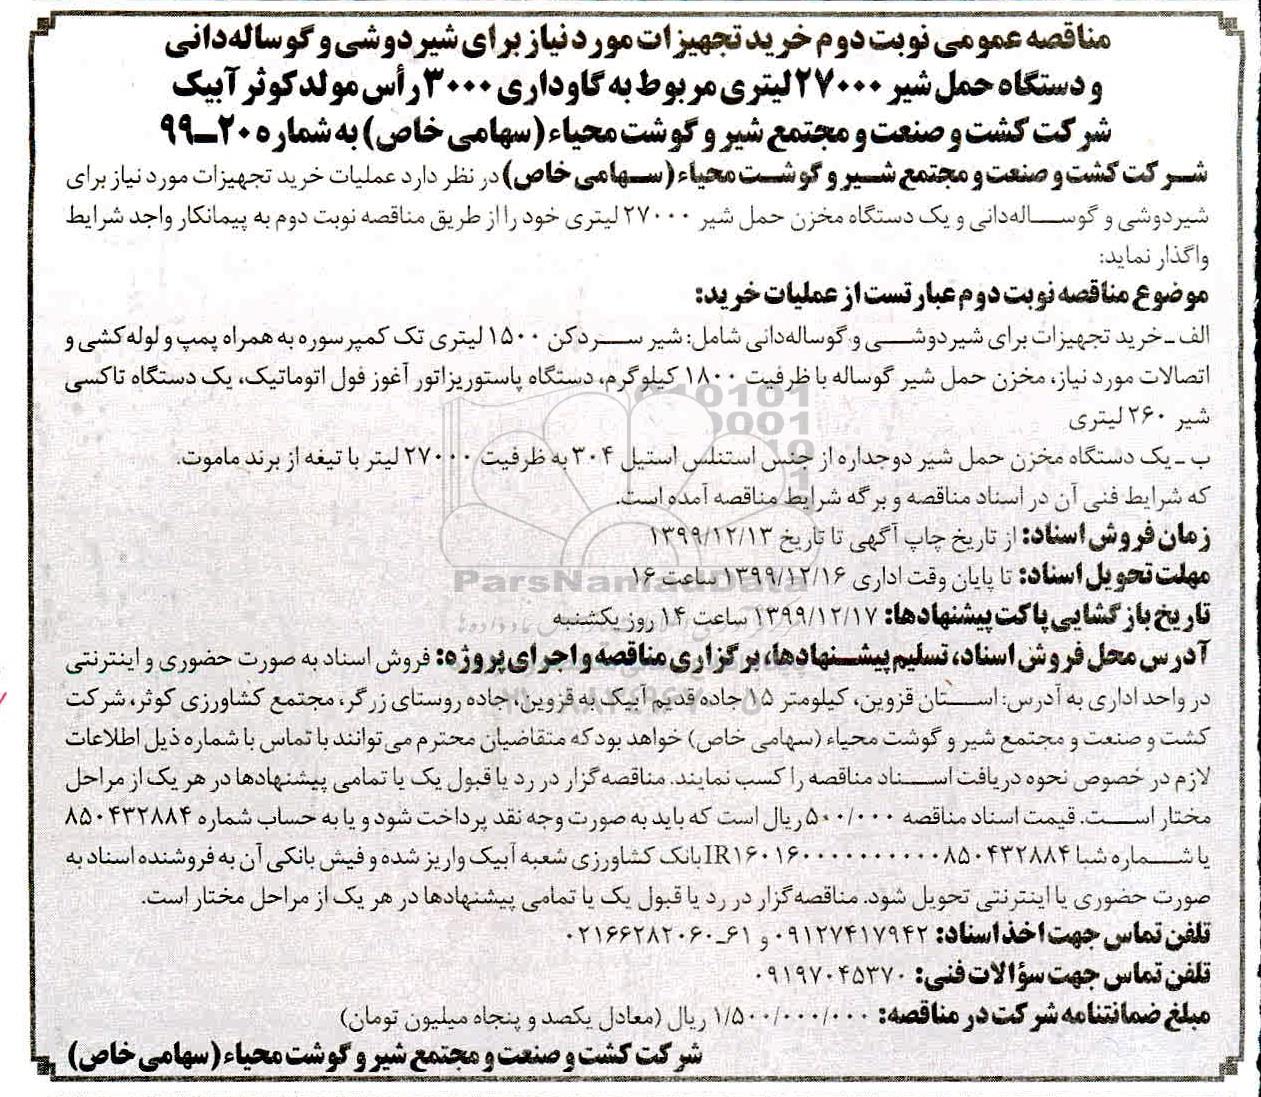 مناقصه عمومی نوبت دوم خرید تجهیزات مورد نیاز برای شیردوشی و گوساله‌دانی
و دستگاه حمل شیر ۲۷۰۰۰ لیتری مربوط به گاوداری ۳۰۰۰ رأس مولد کوثر آبیک
شرکت کشت و صنعت و مجتمع شیر و گوشت محیاء (سهامی خاص) به شماره ۲۰ـ۹۹
شرکت کشت و صنعت و مجتمع شیر و گوشت محیاء (سهامی خاص) در نظر دارد عملیات خرید تجهیزات مورد نیاز برای
شیردوشی و گوساله‌دانی و یک دستگاه مخزن حمل شیر ۲۷۰۰۰ لیتری خود را از طریق مناقصه نوبت دوم به پیمانکار واجد شرایط
واگذار نماید:
موضوع مناقصه نوبت دوم عبارتست از عملیات خرید:
الف ـ خرید تجهیزات برای شیردوشی و گوساله‌دانی شامل: شیر سردکن ۱۵۰۰ لیتری تک کمپرسوره به همراه پمپ و لوله‌کشی و
اتصالات مورد نیاز، مخزن حمل شیر گوساله با ظرفیت ۱۸۰۰ کیلوگرم، دستگاه پاستوریزاتور آغوز فول اتوماتیک، یک دستگاه تاکسی
شیر ۲۶۰ لیتری
ب ـ یک دستگاه مخزن حمل شیر دوجداره از جنس استنلس استیل ۳۰۴ به ظرفیت ۲۷۰۰۰ لیتر با تیغه از برند ماموت.
که شرایط فنی آن در اسناد مناقصه و برگه شرایط مناقصه آمده است.
زمان فروش اسناد: از تاریخ چاپ آگهی تا تاریخ ۱۳۹۹/۱۲/۱۳
مهلت تحویل اسناد: تا پایان وقت اداری ۱۳۹۹/۱۲/۱۶ ساعت ۱۶
ParsNamadData
تاریخ بازگشایی پاکت پیشنهادها: ۱۳۹۹/۱۲/۱۷ ساعت ۱۴ روز یکشنبه
آدرس محل فروش اسناد، تسلیم پیشنهادها، برگزاری مناقصه و اجرای پروژه: فروش اسناد به صورت حضوری و اینترنتی
در واحد اداری به آدرس: استان قزوین، کیلومتر ۱۵ جاده قدیم آبیک به قزوین، جاده روستای زرگر، مجتمع کشاورزی کوثر، شرکت
کشت و صنعت و مجتمع شیر و گوشت محیاء (سهامی خاص) خواهد بود که متقاضیان محترم می‌توانند با تماس با شماره ذیل اطلاعات
لازم در خصوص نحوه دریافت اسناد مناقصه را کسب نمایند. مناقصه‌گزار در رد یا قبول یک یا تمامی پیشنهادها در هر یک از مراحل
مختار است. قیمت اسناد مناقصه ۵۰۰/۰۰۰ ریال است که باید به صورت وجه نقد پرداخت شود و یا به حساب شماره ۸۵۰۴۳۲۸۸۴
یا شماره شبا IR۱۶۰۱۶۰۰۰۰۰۰۰۰۰۰۰۸۵۰۴۳۲۸۸۴ بانک کشاورزی شعبه آبیک واریز شده و فیش بانکی آن به فروشنده اسناد به
صورت حضوری یا اینترنتی تحویل شود. مناقصه‌گزار در رد یا قبول یک یا تمامی پیشنهادها در هر یک از مراحل مختار است.
تلفن تماس جهت اخذ اسناد: ۰۹۱۲۷۴۱۷۹۴۲ و ۶۱ـ۰۲۱۶۶۲۸۲۰۶۰
تلفن تماس جهت سؤالات فنی: ۰۹۱۹۷۰۴۵۳۷۰
مبلغ ضمانتنامه شرکت در مناقصه: ۱/۵۰۰/۰۰۰/۰۰۰ ریال (معادل یکصد و پنجاه میلیون تومان)
شرکت کشت و صنعت و مجتمع شیر و گوشت محیاء (سهامی خاص)